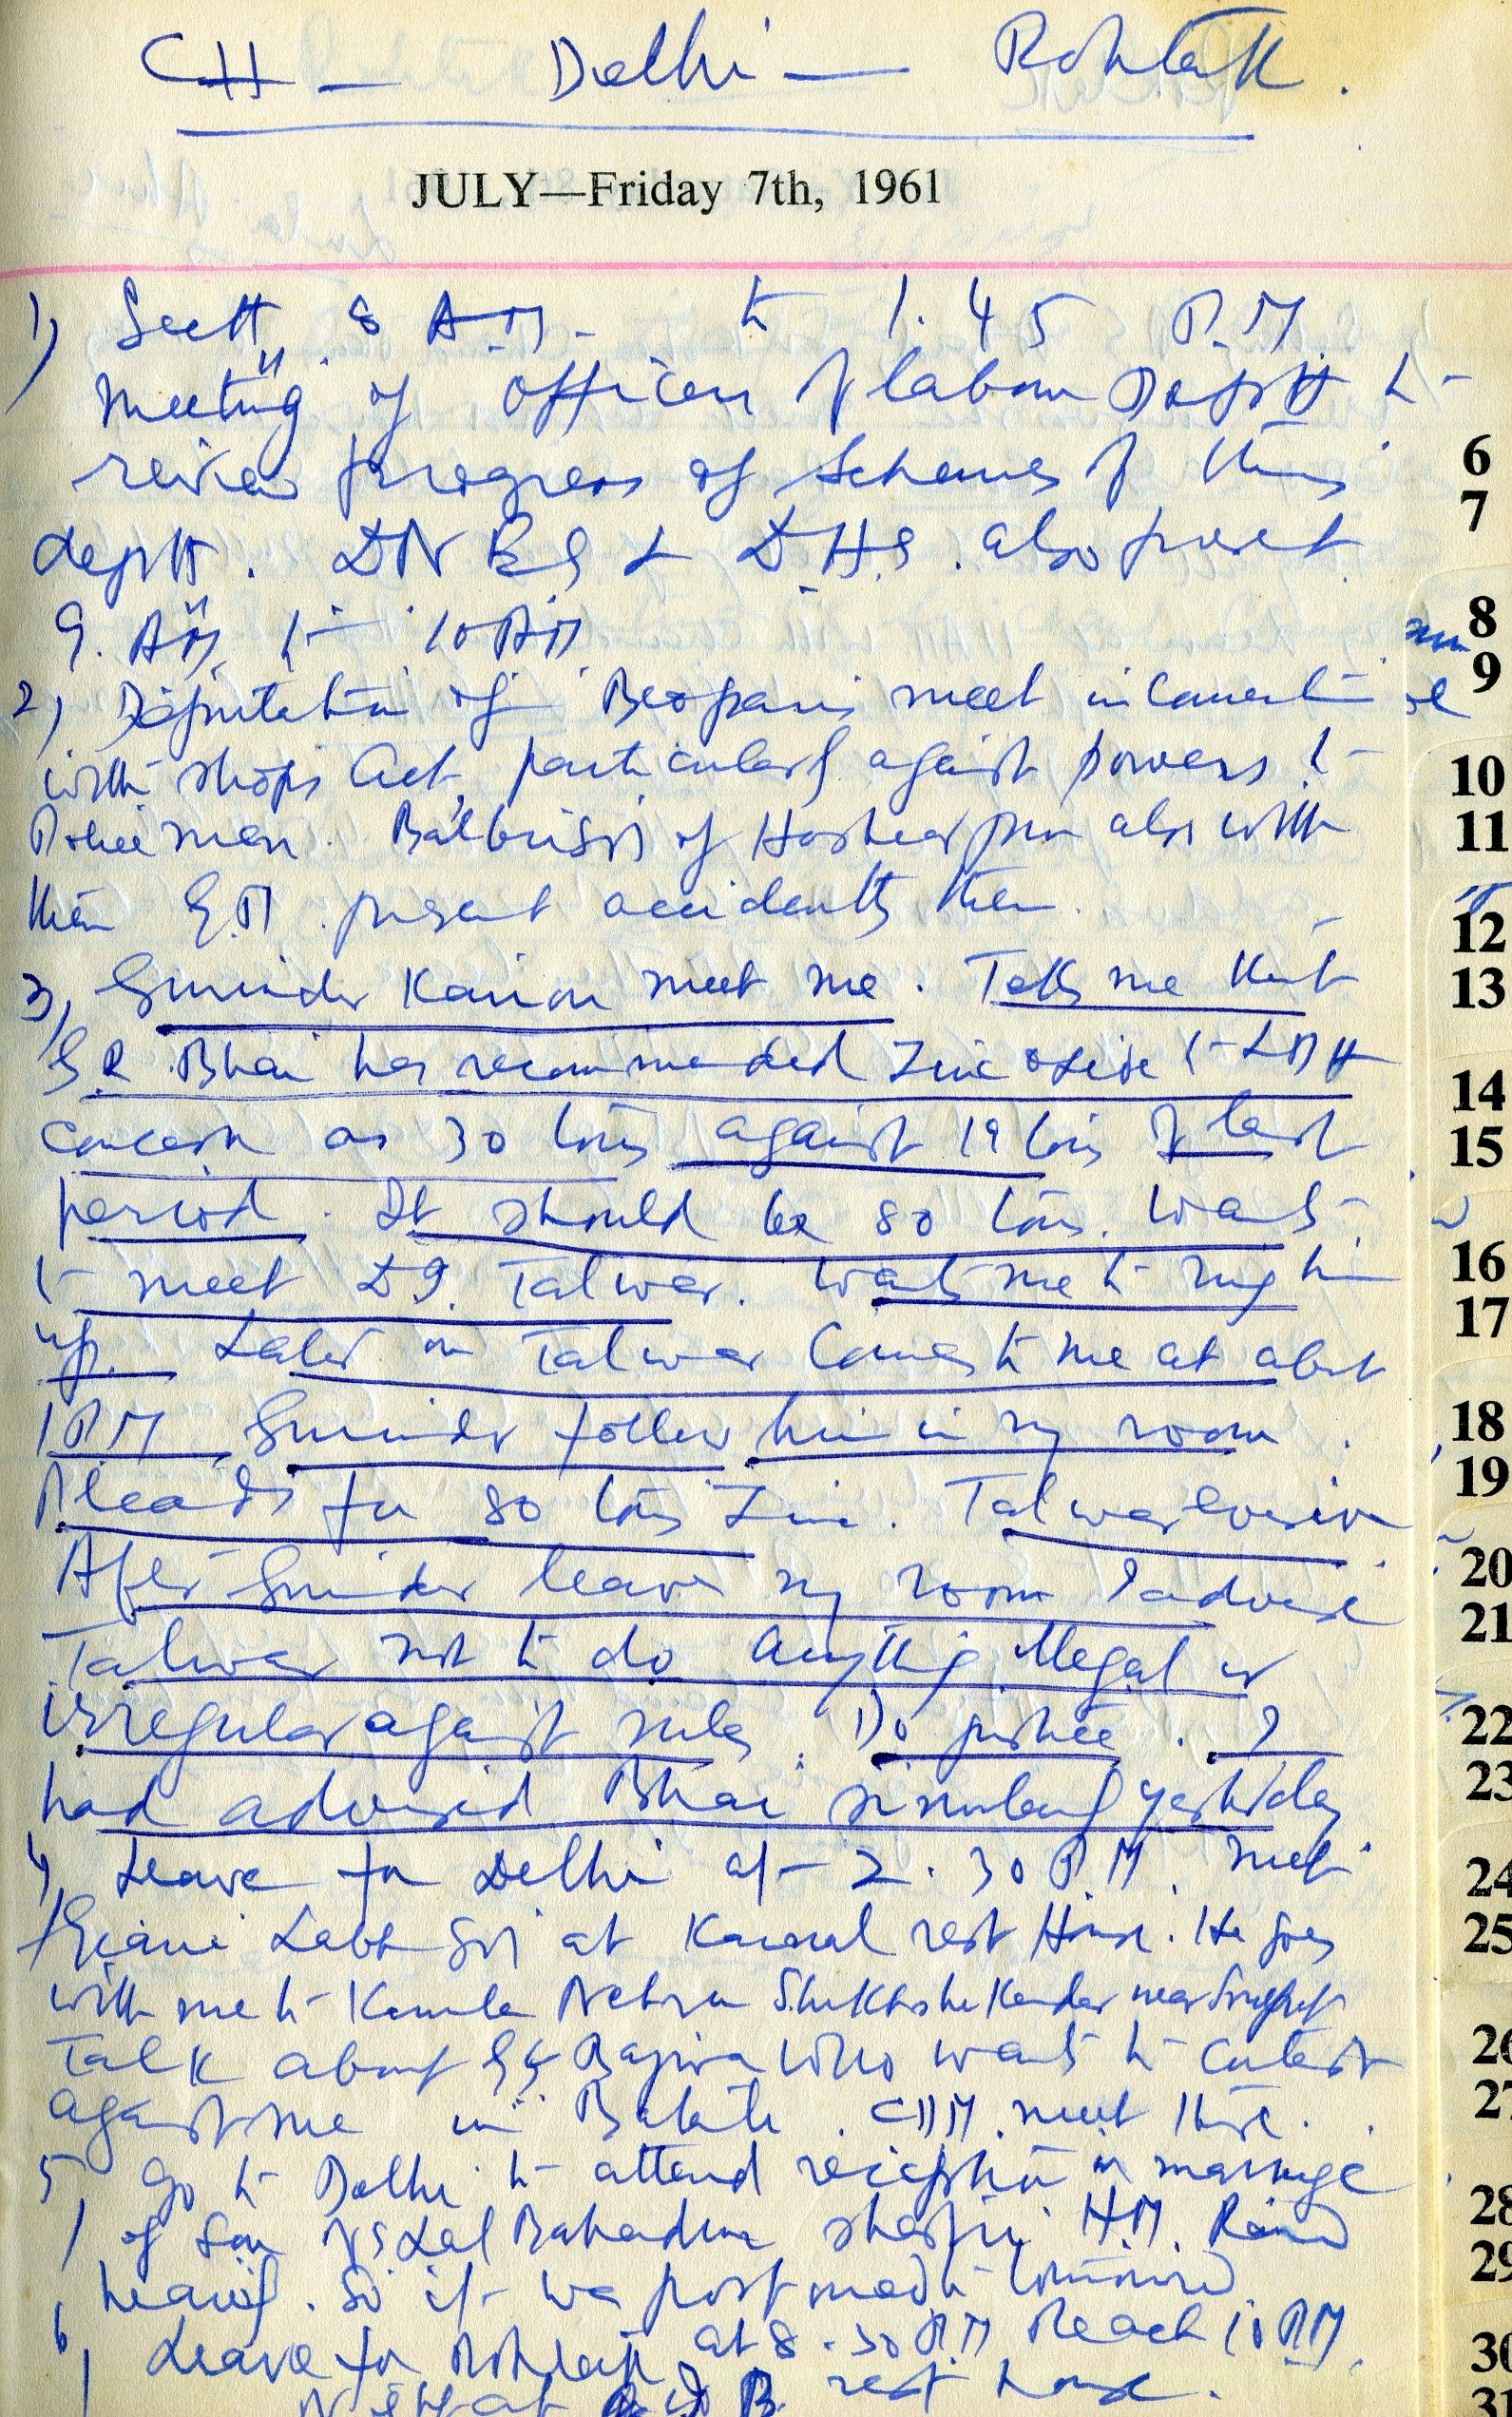 CH — Delhi — Rohtak.
JULY—Friday 7th, 1961
1) Sectt. 8 A.M. to 1.45 P.M.
Meeting of officers of labour Deptt to
review progress of schemes of this
deptt. D.H.S. also present
9. AM to 10 AM
2) Deputation of Beoparis meet in connection
with shops Act, particularly against powers to
Police men. of Hoshiarpur also with
them present accidently then.
3) Surinder Kairon meet me. Tells me that
Bhai has recommended Zinc oxide to
concern as 30 tons against 19 tons of last
period. It should be 80 tons. Wants
to meet Talwar. Wants me to ring him
up. Later on Talwar comes to me at about
1 PM Surinder follow him in my room.
Pleads for 80 tons Zinc. Talwar evasive
After Surinder leaves my room I advise
Talwar not to do anything illegal or
irregular against rules. Do justice. I
had advised Bhai similarly yesterday
4) Leave for Delhi at 2.30 P.M. meet
Giani Labh at Karnal rest House. He goes
with me to Kamla Nehru Kender near
Talk about Bajwa who wants to contest
against me in Batala. meet there.
5) Go to Delhi to attend reception in marriage
of son of Lal Bahadur Shastri H.M. Rained
heavily. So it was postponed to tomorrow
6) Leave for Rohtak at 8.30 P.M Reach 10 PM.
rest house.
6
7
8
9
10
11
12
13
14
15
16
17
18
19
20
21
22
23
24
25
26
27
28
29
30
31